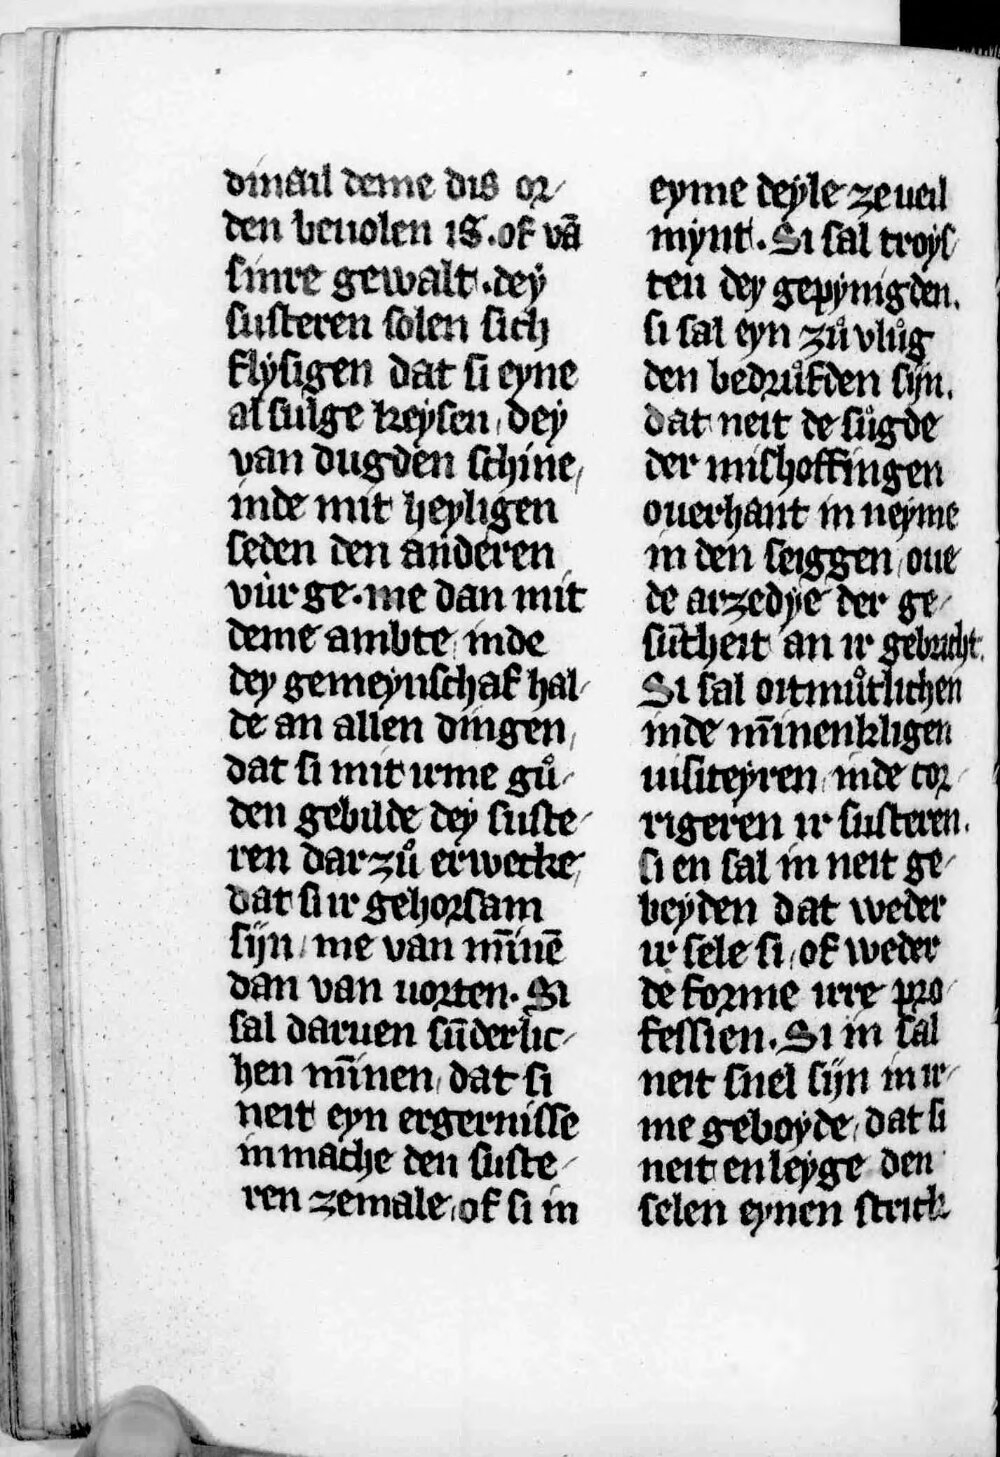 dinail deme dis or⸗
den beuolen is. of vā
sinre gewalt. dey
susteren solen sich
flysigen dat si eyne
alsulge keysen, dey
van dugden schine,
inde mit heyligen
seden den anderen
vur ge. me dan mit
deme ambte, inde
dey gemeynschaf hal⸗
de an allen dingen,
dat si mit irme gů⸗
den gebilde dey suste⸗
ren darzů erwecke,
dat si ir gehorsam
sijn, me van mīnē
dan van uorten. Si
sal daruen sūderlic⸗
hen mīnen, dat si
neit eyn ergernisse
in mache den suste⸗
ren zemale, of si in
eyme deyle ze ueil
mynt. Si sal troys⸗
ten dey gepynigden.
si sal eyn zů vlůg
den bedrůfden sijn.
dat neit de sůgde
der mishoffingen
ouerhant in neyme
in den seiggen, oue
de arzedye der ge⸗
sūtheit an ir gebricht.
Si sal oitmůtlichen
inde mīnenkligen
uisiteyren, inde cor⸗
rigeren ir susteren.
si en sal in neit ge⸗
beyden dat weder
ir sele si, of weder
de forme irre pro⸗
fessien. Si in sal
neit snel sijn in ir⸗
me geboyde, dat si
neit en leyge den
selen eynen strick